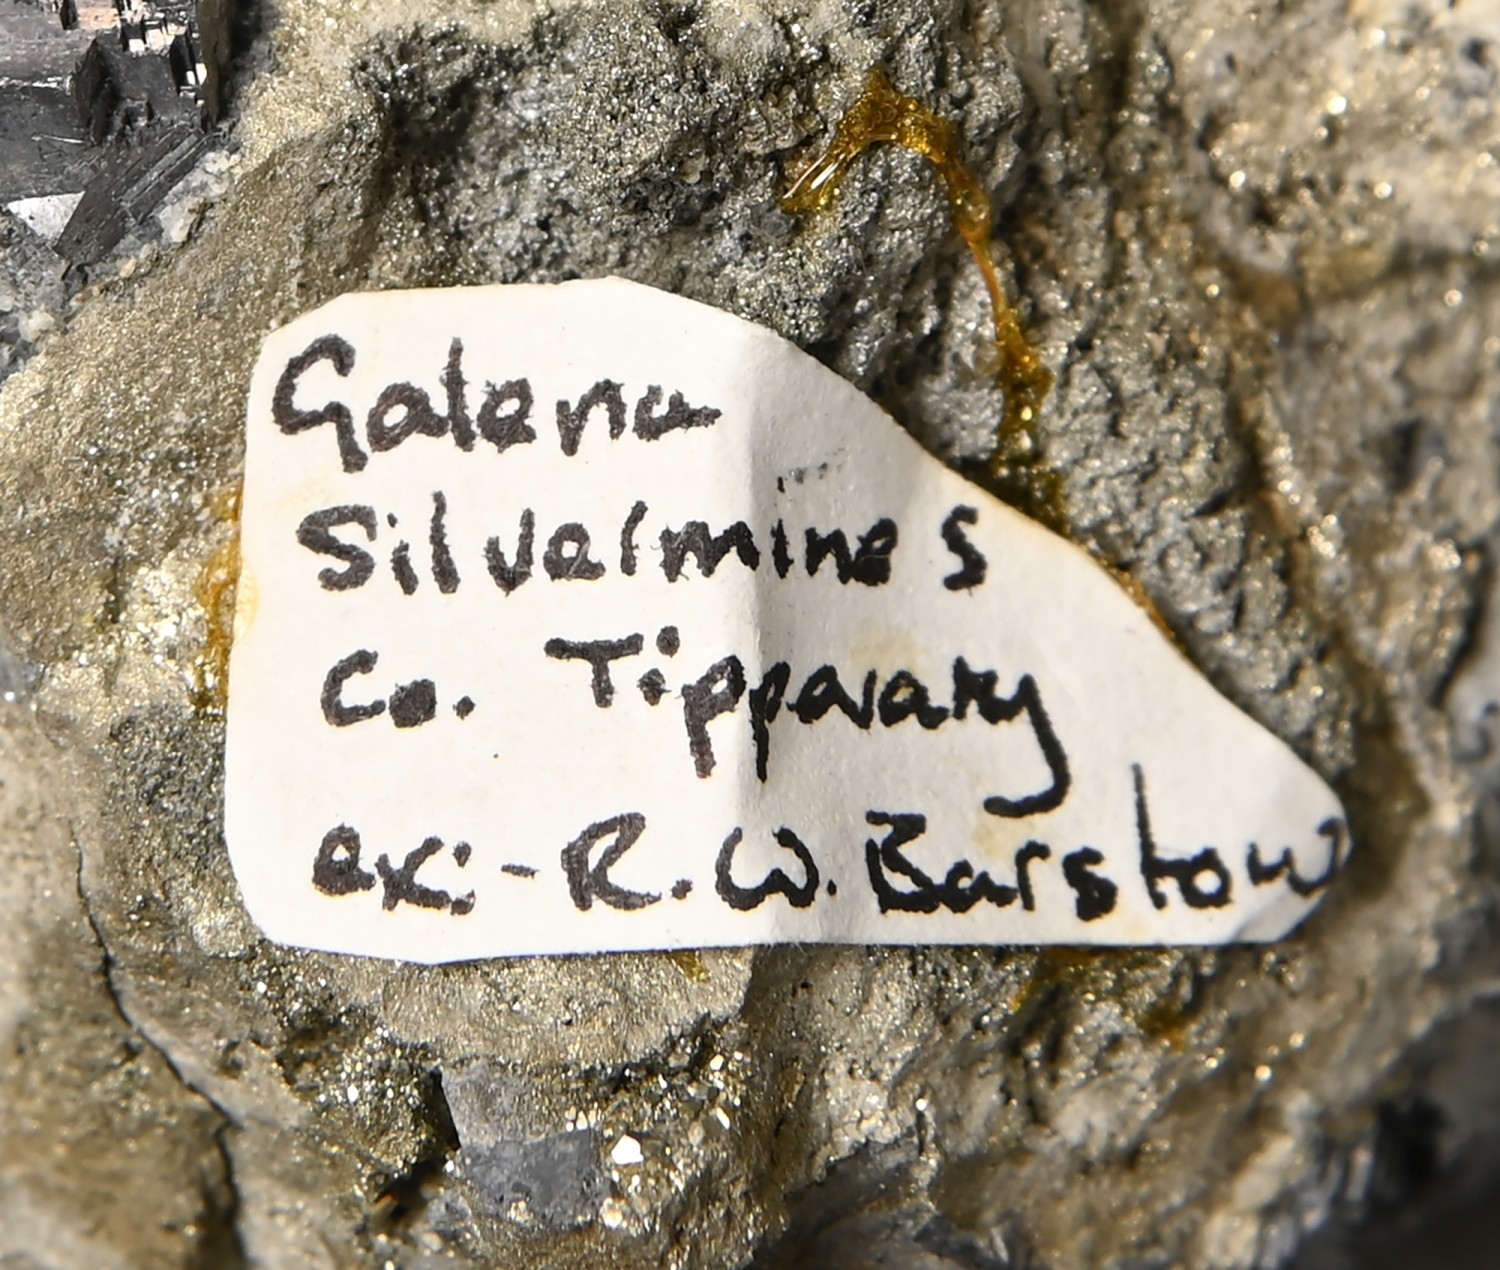 Galena
Silvermines
Co. Tipperary
ex:- R. W. Barstow